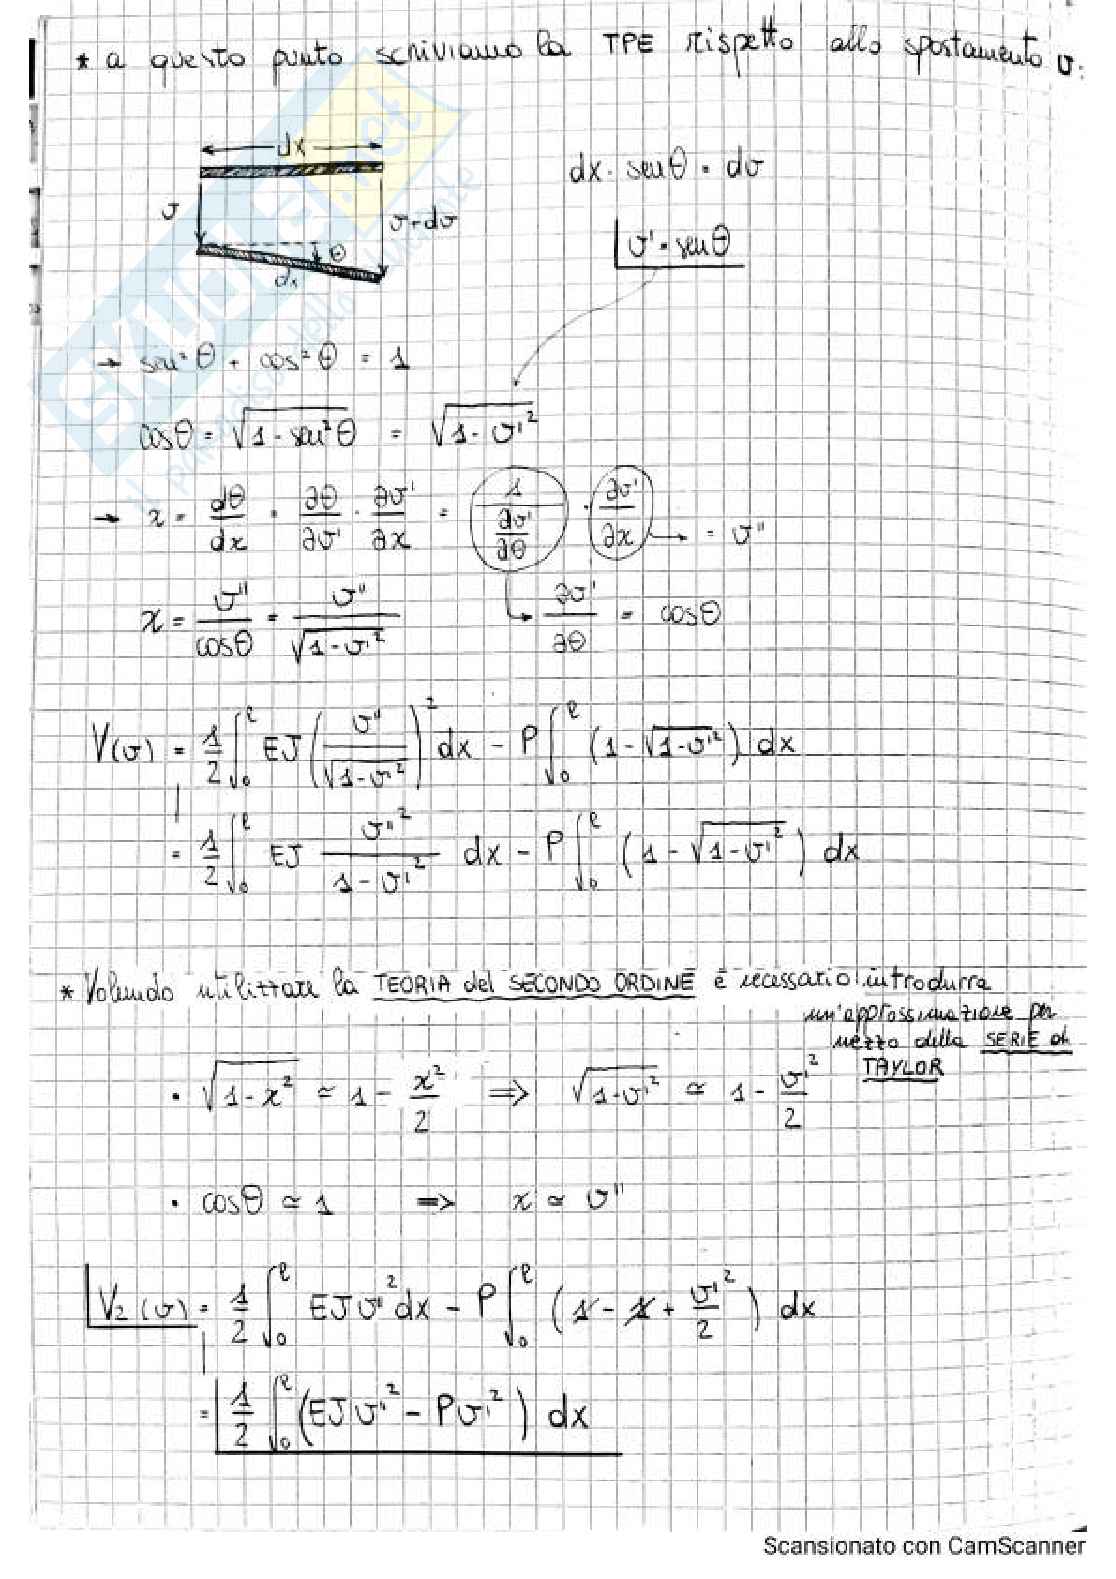 * a questo punto scriviamo la TPE rispetto allo spostamento v:
dx
v
v+dv
θ
dx
dx · senθ = dv
v' = senθ
→ sen²θ + cos²θ = 1
cosθ = √(1 - sen²θ) = √(1 - v'²)
→ χ = dθ/dx = ∂θ/∂v' · ∂v'/∂x = 1/(∂v'/∂θ) · ∂v'/∂x → = v''
χ = v''/cosθ = v''/√(1-v'²)
∂v'/∂θ = cosθ
V(v) = 1/2 ∫₀ˡ EJ (v''/√(1-v'²))² dx - P ∫₀ˡ (1-√(1-v'²)) dx
= 1/2 ∫₀ˡ EJ v''²/(1-v'²) dx - P ∫₀ˡ (1 - √(1-v'²)) dx
* Volendo utilizzare la TEORIA del SECONDO ORDINE è necessario introdurre
un'approssimazione per
mezzo della SERIE di
TAYLOR
• √(1-x²) ≃ 1 - x²/2 ⇒ √(1-v'²) ≃ 1 - v'²/2
• cosθ ≃ 1 ⇒ χ ≃ v''
V₂(v) = 1/2 ∫₀ˡ EJv''² dx - P ∫₀ˡ (1 - 1 + v'²/2) dx
= 1/2 ∫₀ˡ (EJv''² - Pv'²) dx
Scansionato con CamScanner